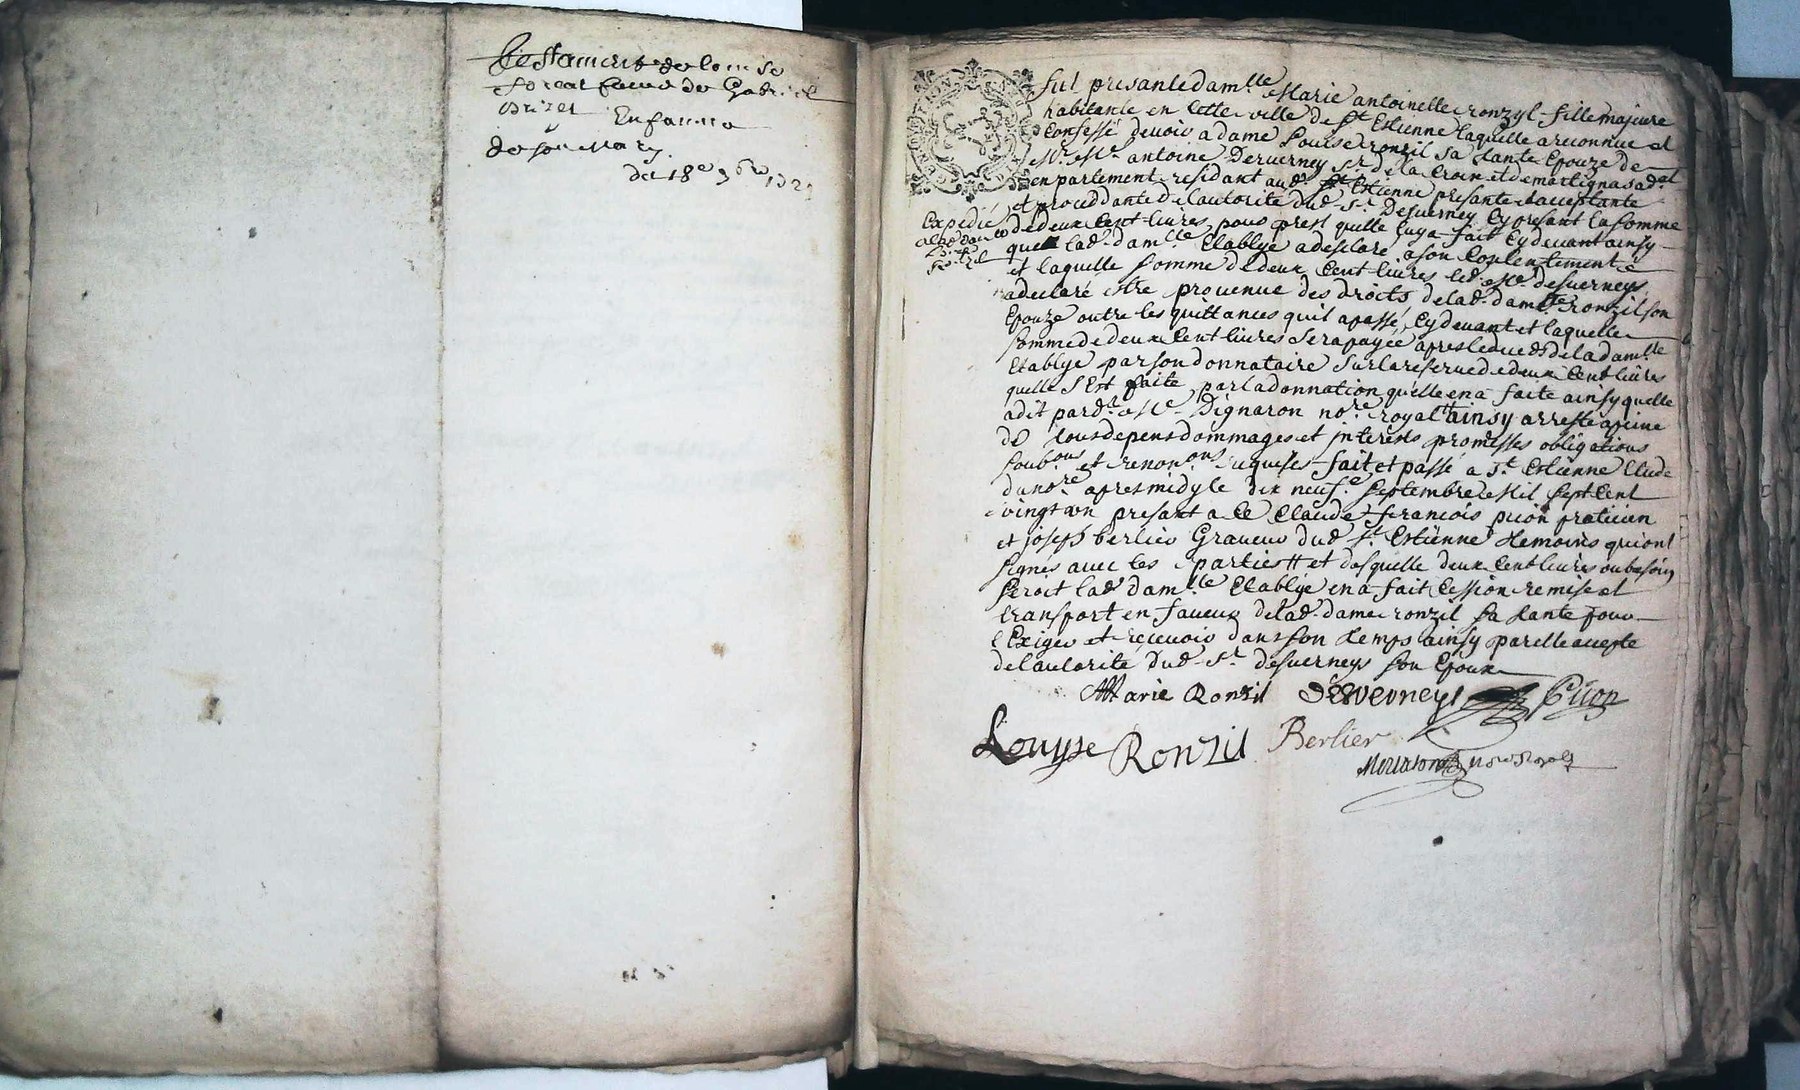 Testament de Louise
femme de Gabriel
En faveur
de son Mary
du 18e 9bre 172
Fut presante damlle Marie antoinette ronzyl fille majeure
habitante en cette ville de st Estienne laquelle a reconnue et
Confessé devoir a dame Louise ronzil sa tante Epouze de
Mr Me antoine Deverney sr de la Croix et de martignas adat
en parlement residant aud. st Estienne presante et acceptante
et proceddante de lautorité dud. sr Desverney Cy presant la somme
Expedié
a lad. dame
Ronzil
de deux Cent livres pour prest quelle luy a fait Cy devant ainsy
que lad. damlle Etablye a desclaré a son Contentement
et laquelle somme de deux Cent livres led. Me desverneys
a declaré estre provenue des droits de lad. dame ronzil son
Epouze outre les quittances quil a passé Cy devant et laquelle
somme de deux Cent livres sera payée apres le deceds de la damlle
Etablye par son donnataire sur la reserve de deux Cent livres
quelle s'Est faite par la donnation quelle en a faite ainsy quelle
a dit pard. Me Dignaron nore royal ainsy arresté a peine
de tous depens dommages et interests promisses obligations
soubons et renonons requises fait et passé a St Estienne Etude
du nore apres midy le dix neufe septembre Mil sept Cent
vingt un presant a Ce Claude francois pion praticien
et joseph berlier Graveur dud. st Estienne temoins qui ont
signés avec les parties # et desquelle deux Cent livres ou besoin
seroit lad. damlle Etablye en a fait Cession remise et
transport en faveur de lad. dame ronzil sa tante pour
l'Exiger et recevoir dans son temps ainsy par elle accepté
de lautorité dud. sr desverneys son Epoux
Marie Ronzil Desverneys Pion
Louyse Ronzil Berlier
nore Royal